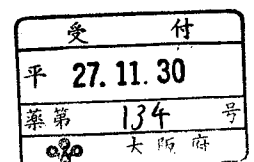 受 付
平 27. 11. 30
薬第 134 号
大阪府